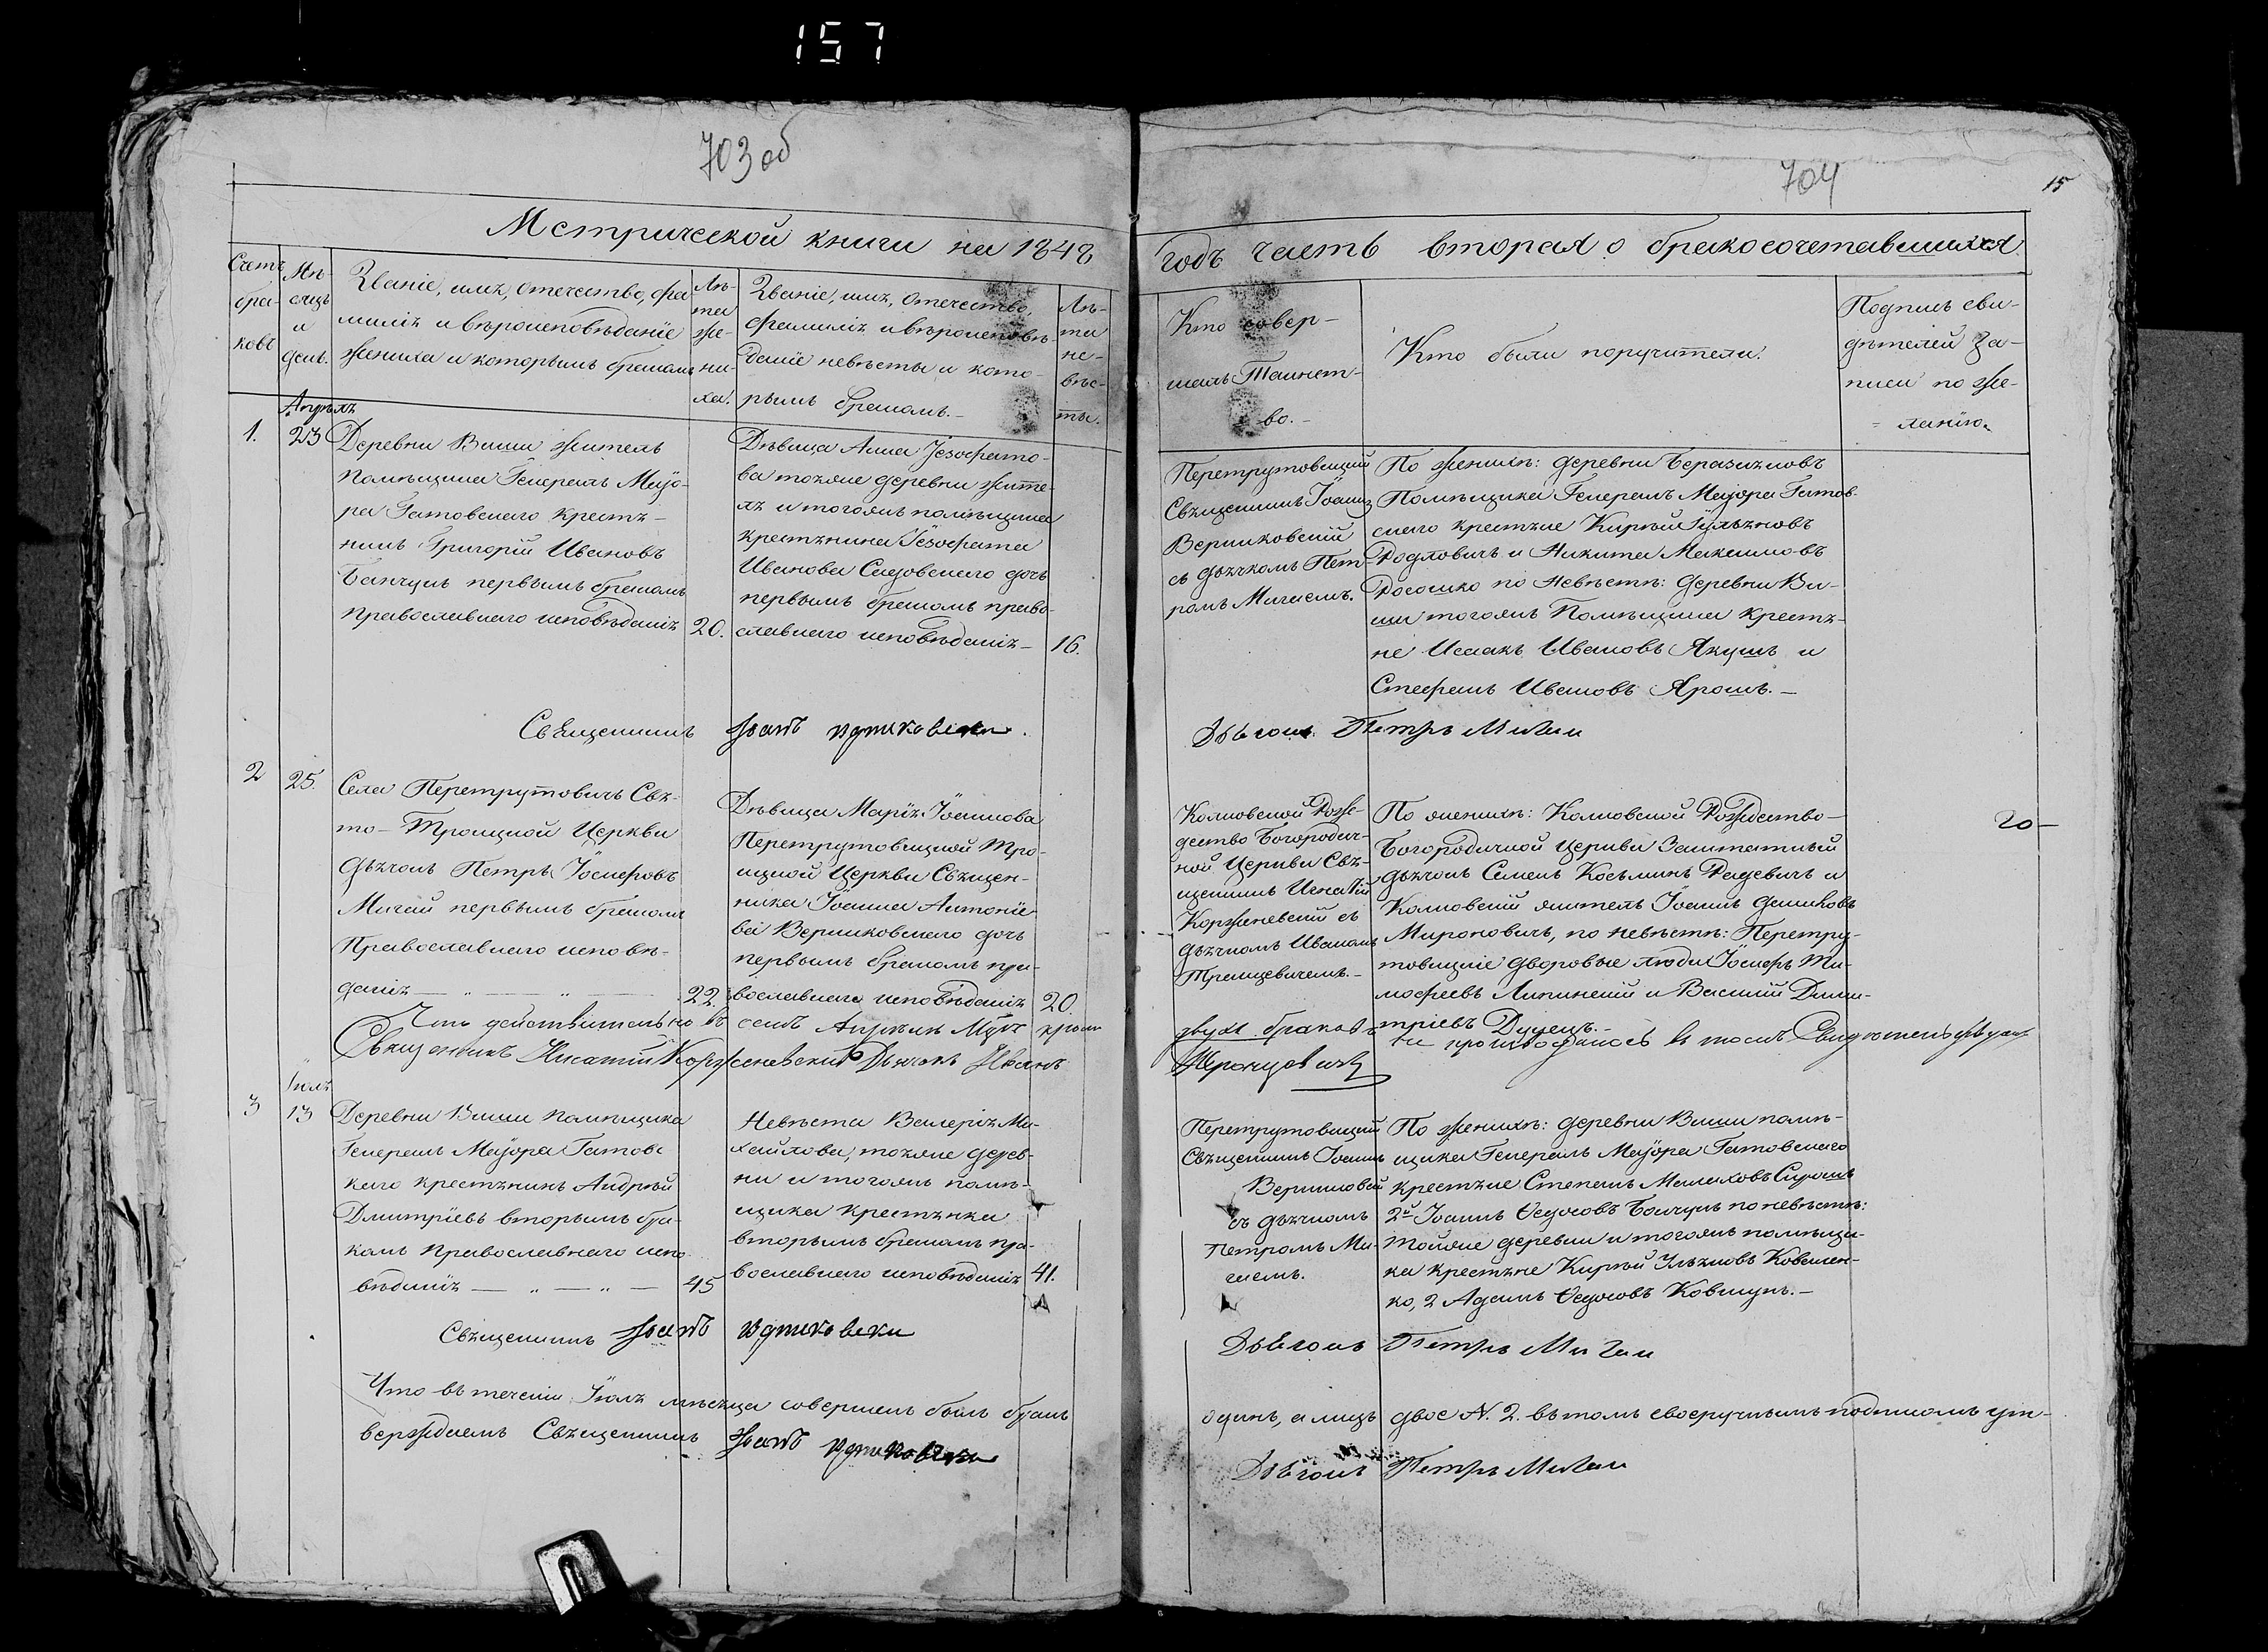 157
703 об
704
15
Метрической книги на 1848
годъ часть вторая о бракосочетавшихся
Счетъ
бра-
ковъ
Мѣ-
сяцъ
и
день.
Званіе, имя, отечество, фа-
милія и вѣроисповѣданіе
жениха и которымъ бракомъ
Лѣ-
та
же-
ни-
ха.
Званіе, имя, отечество,
фамилія и вѣроисповѣ-
даніе невѣсты и кото-
рымъ бракомъ.
Лѣ-
та
не-
вѣс-
ты.
Кто совер-
шалъ Таинст-
во.
Кто были поручители.
Подпись сви-
дѣтелей за-
писи по же-
ланію.
Апрѣль
1.
23
Деревни Вишы житель
Помѣщика Генералъ Маіо-
ра Гатовскаго крестя-
нинъ Григорій Ивановъ
первымъ бракомъ
православнаго исповѣданія
20.
Дѣвица Анна Іезофато-
ва тояже деревни жите-
ля и тогожъ помѣщика
крестянина Іезофата
Иванова Садовскаго дочь
первымъ бракомъ право-
славнаго исповѣданія
16.
Перетрутовицкій
Священникъ Іоаннъ
Вериковскій
съ дячкомъ Пет-
ромъ Мигаемъ.
По женихѣ: деревни
Помѣщика Генералъ Маіора Гатов-
скаго крестяне Кирѣй
Родловичъ и Никита Максимовъ
по невѣстѣ: деревни Ви-
ши тогожъ Помѣщика крестя-
не Исаакъ Ивановъ Якушъ и
Стефанъ Ивановъ Ярошъ.
Священникъ Іоаннъ
Дьячокъ Петръ Мигай
2
25.
Села Перетрутовичъ Свя-
то-Троицкой Церкви
дячокъ Петръ Іосифовъ
Мигай первымъ бракомъ
Православнаго исповѣ-
данія
22.
Дѣвица Марія Іоаннова
Перетрутовицкой Тро-
ицкой Церкви Священ-
ника Іоанна Антоніе-
ва Вериковскаго дочь
первымъ бракомъ пра-
вославнаго исповѣданія
20.
Колковской Рож-
дество Богородич-
ной Церкви Свя-
щенникъ Игнатій
Корженевскій съ
дячкомъ Иваномъ
По женихѣ: Колковской Рождество-
Богородичной церкви Заштатный
дячокъ Семенъ Косьминъ и
Колковскій житель Іоаннъ
Мироновичъ, по невѣстѣ: Перетру-
товицкіе дворовые люди Іосифъ Ти-
мофеевъ Липинскій и Василій Дими-
тріевъ Дудецъ.
20
Что действительно въ семъ Апрѣлѣ мѣсѣ кромѣ
двухъ браковъ не производилось въ томъ свидѣтельствуемъ
Священникъ Игнатій Корженевскій Дьячокъ Иванъ
Іюля
3
13
Деревни Вишы помѣщика
Генералъ Маіора Гатовс-
каго крестянинъ Андрѣй
Дмитріевъ вторымъ бра-
комъ православнаго испо-
вѣданія
45
Невѣста Валерія Ми-
хайлова, тояже дерев-
ни и тогожъ помѣ-
щика крестянка
вторымъ бракомъ пра-
вославнаго исповѣданія
41.
Перетрутовицкій
Священникъ Іоаннъ
съ дячкомъ
Петромъ Ми-
гаемъ.
По женихѣ: деревни Вишы помѣ-
щика Генералъ Маіора Гатовскаго
крестяне Степанъ
2й Іоаннъ Ѳедосовъ по невѣстѣ:
тойже деревни и тогожъ помѣщи-
ка крестяне Кирѣй Ковален-
ко, 2 Адамъ Ѳедосовъ Ковшунъ.
Священникъ Іоаннъ
Дьячокъ Петръ Мигай
Что въ теченіи Іюля мѣсяца совершенъ былъ бракъ
одинъ, а лицъ двое N. 2. въ томъ своеручнымъ подписомъ ут-
верждаемъ Священникъ Іоаннъ
Дьячокъ Петръ Мигай